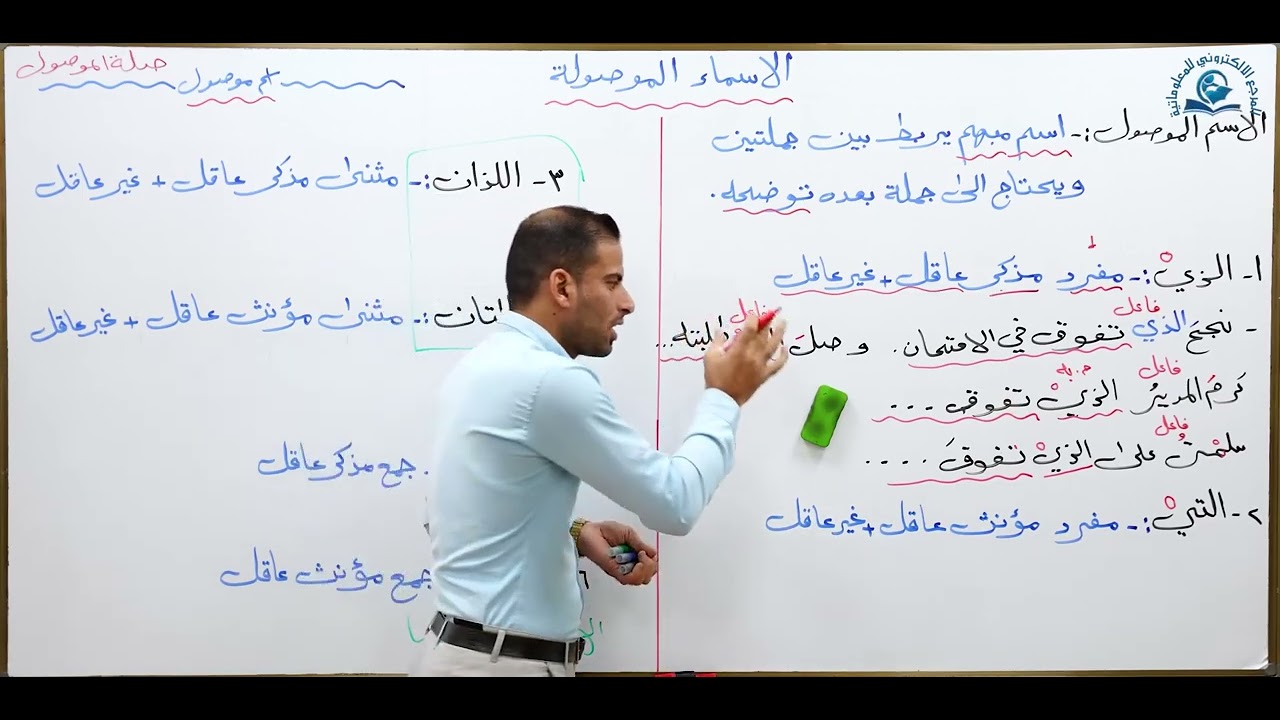 الاسماء الموصولة
صلة الموصول
اسم موصول
المرجع الالكتروني للمعلوماتية
الاسم الموصول :- اسم مبهم يربط بين جملتين
ويحتاج الى جملة بعده توضحه .
١- الذيْ :- مفرد مذكر عاقل + غير عاقل
فاعل
- نجحَ الذي تفوق في الامتحان . وصلَ
فاعل
فاعل م . به
كَرمَ المديرُ الذيْ تفوق ...
فاعل
سلمْتُ على الذيْ تفوقَ ....
٢- التيْ :- مفرد مؤنث عاقل + غير عاقل
٣- اللذان :- مثنى مذكر عاقل + غير عاقل
تان :- مثنى مؤنث عاقل + غير عاقل
جمع مذكر عاقل
٦ جمع مؤنث عاقل